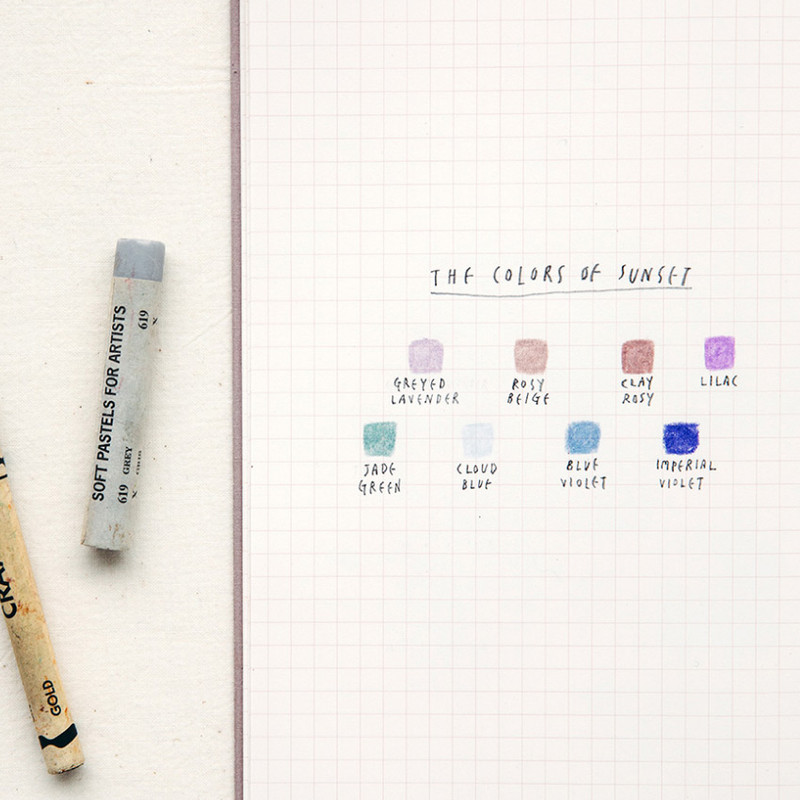 THE COLORS OF SUNSET
GREYED
LAVENDER
ROSY
BEIGE
CLAY
ROSY
LILAC
JADE
GREEN
CLOUD
BLUE
BLUE
VIOLET
IMPERIAL
VIOLET
SOFT PASTELS FOR ARTISTS
619
619 GREY
GOLD